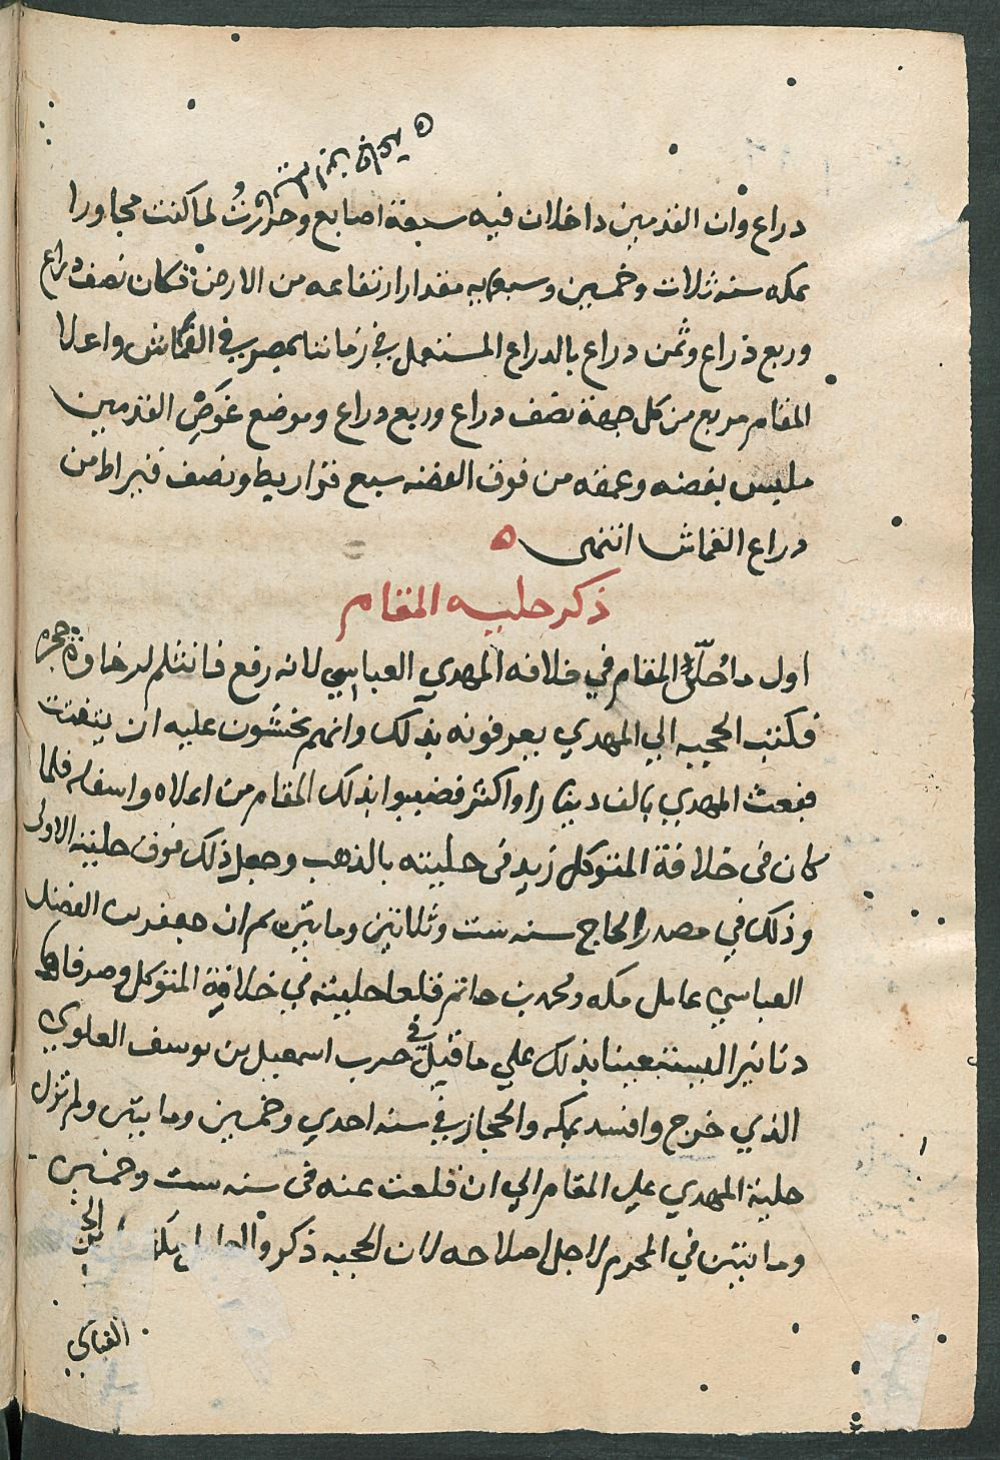 دراع وان القدمين داخلان فيه سبعة اصابع وحررت لما كنت مجاورا
بمكه سنه ثلاث وخمسين وسبعمايه مقدار ارتفاعه من الارض فكان نصف دراع
وربع ذراع وثمن دراع بالدراع المستعمل في زماننا بمصر في القماش واعلا
المقام مربع من كل جهة نصف دراع وربع دراع وموضع غوص القدمين
ملبس بفضه وعمقه من فوق الفضه سبع قراريط ونصف قيراط من
دراع القماش انتهى ه
ذكر حليه المقام
اول ما حُلّي المقام في خلافه المهدي العباسي لانه رفع فانثلم لرخاوة حجره
فكتب الحجبه الي المهدي يعرفونه بذلك وانهم يخشون عليه ان يتفتت
فبعث المهدي بالف دينارا واكثر فضببوا بذلك المقام من اعلاه واسفله فلما
كان فى خلافة المتوكل زيد فى حليته بالذهب وجعل ذلك فوق حليته الاولى
وذلك في مصدر الحاج سنه ست وثلاثين ومايتين ثم ان جعفر بن الفضل
العباسي عامل مكه ومحمد بن حاتم قلعا حليته في خلافة المتوكل وصرفاها
دنانير ليستعينا بذلك علي ما قيل في حرب اسمعيل بن يوسف العلوي
الذي خرج وافسد بمكه والحجاز في سنه احدي وخمسين ومايتين ولم تزل
حلية المهدي علي المقام الي ان قلعت عنه فى سنه ست وخمسين
ومايتين في المحرم لاجل اصلاحه لان الحجبه ذكروا